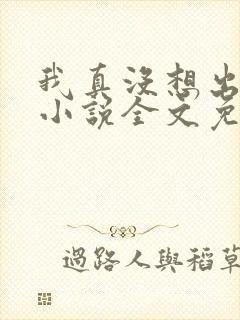 我真没想出
小說全文免
過路人與稻草